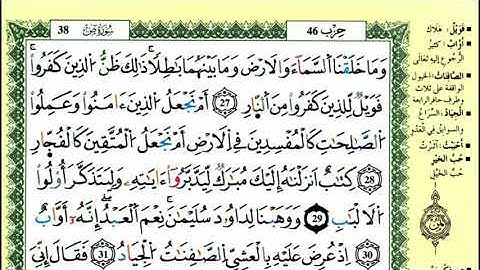 حِزْب 46
سُورَةُ صٓ
38
وَمَا خَلَقْنَا اَلسَّمَآءَ وَالَارْضَ وَمَا بَيْنَهُمَا بَٰطِلاٗ ذَٰلِكَ ظَنُّ اُلذِينَ كَفَرُواْ
فَوَيْلٞ لِّلذِينَ كَفَرُواْ مِنَ اَلنّ۪ارِ 27 أَمْ نَجْعَلُ الذِينَ ءَامَنُواْ وَعَمِلُواْ
الصَّٰلِحَٰتِ كَالْمُفْسِدِينَ فِے اِلَارْضِ أَمْ نَجْعَلُ الْمُتَّقِينَ كَالْفُجّ۪ارِ
28 كِتَٰبٌ اَنزَلْنَٰهُ إِلَيْكَ مُبَٰرَكٞ لِّيَدَّبَّرُوٓاْ ءَايَٰتِهِۦ وَلِيَتَذَكَّرَ أُوْلُواْ
اُلَالْبَٰبِ 29 وَوَهَبْنَا لِدَاوُۥدَ سُلَيْمَٰنَ نِعْمَ اَلْعَبْدُ إِنَّهُۥٓ أَوَّابٌ
30 اِذْ عُرِضَ عَلَيْهِ بِالْعَشِيِّ اِلصَّٰفِنَٰتُ الْجِيَادُ 31 فَقَالَ إِنِّيَ
فَوَيْلٌ: هَلَاك
أَوَّابٌ: كثير
الرجوع إليه تعالى
الصَّافِنَات: الخيول
الواقفة على ثلاث
وطرف حافر الرابعة
الْجِيَادُ: السِّرَاعُ
والسوابق في العَدْو
أَحْبَبْتُ: آثَرْتُ
حُبَّ الْخَيْرِ
حُبَّ الخَيْل